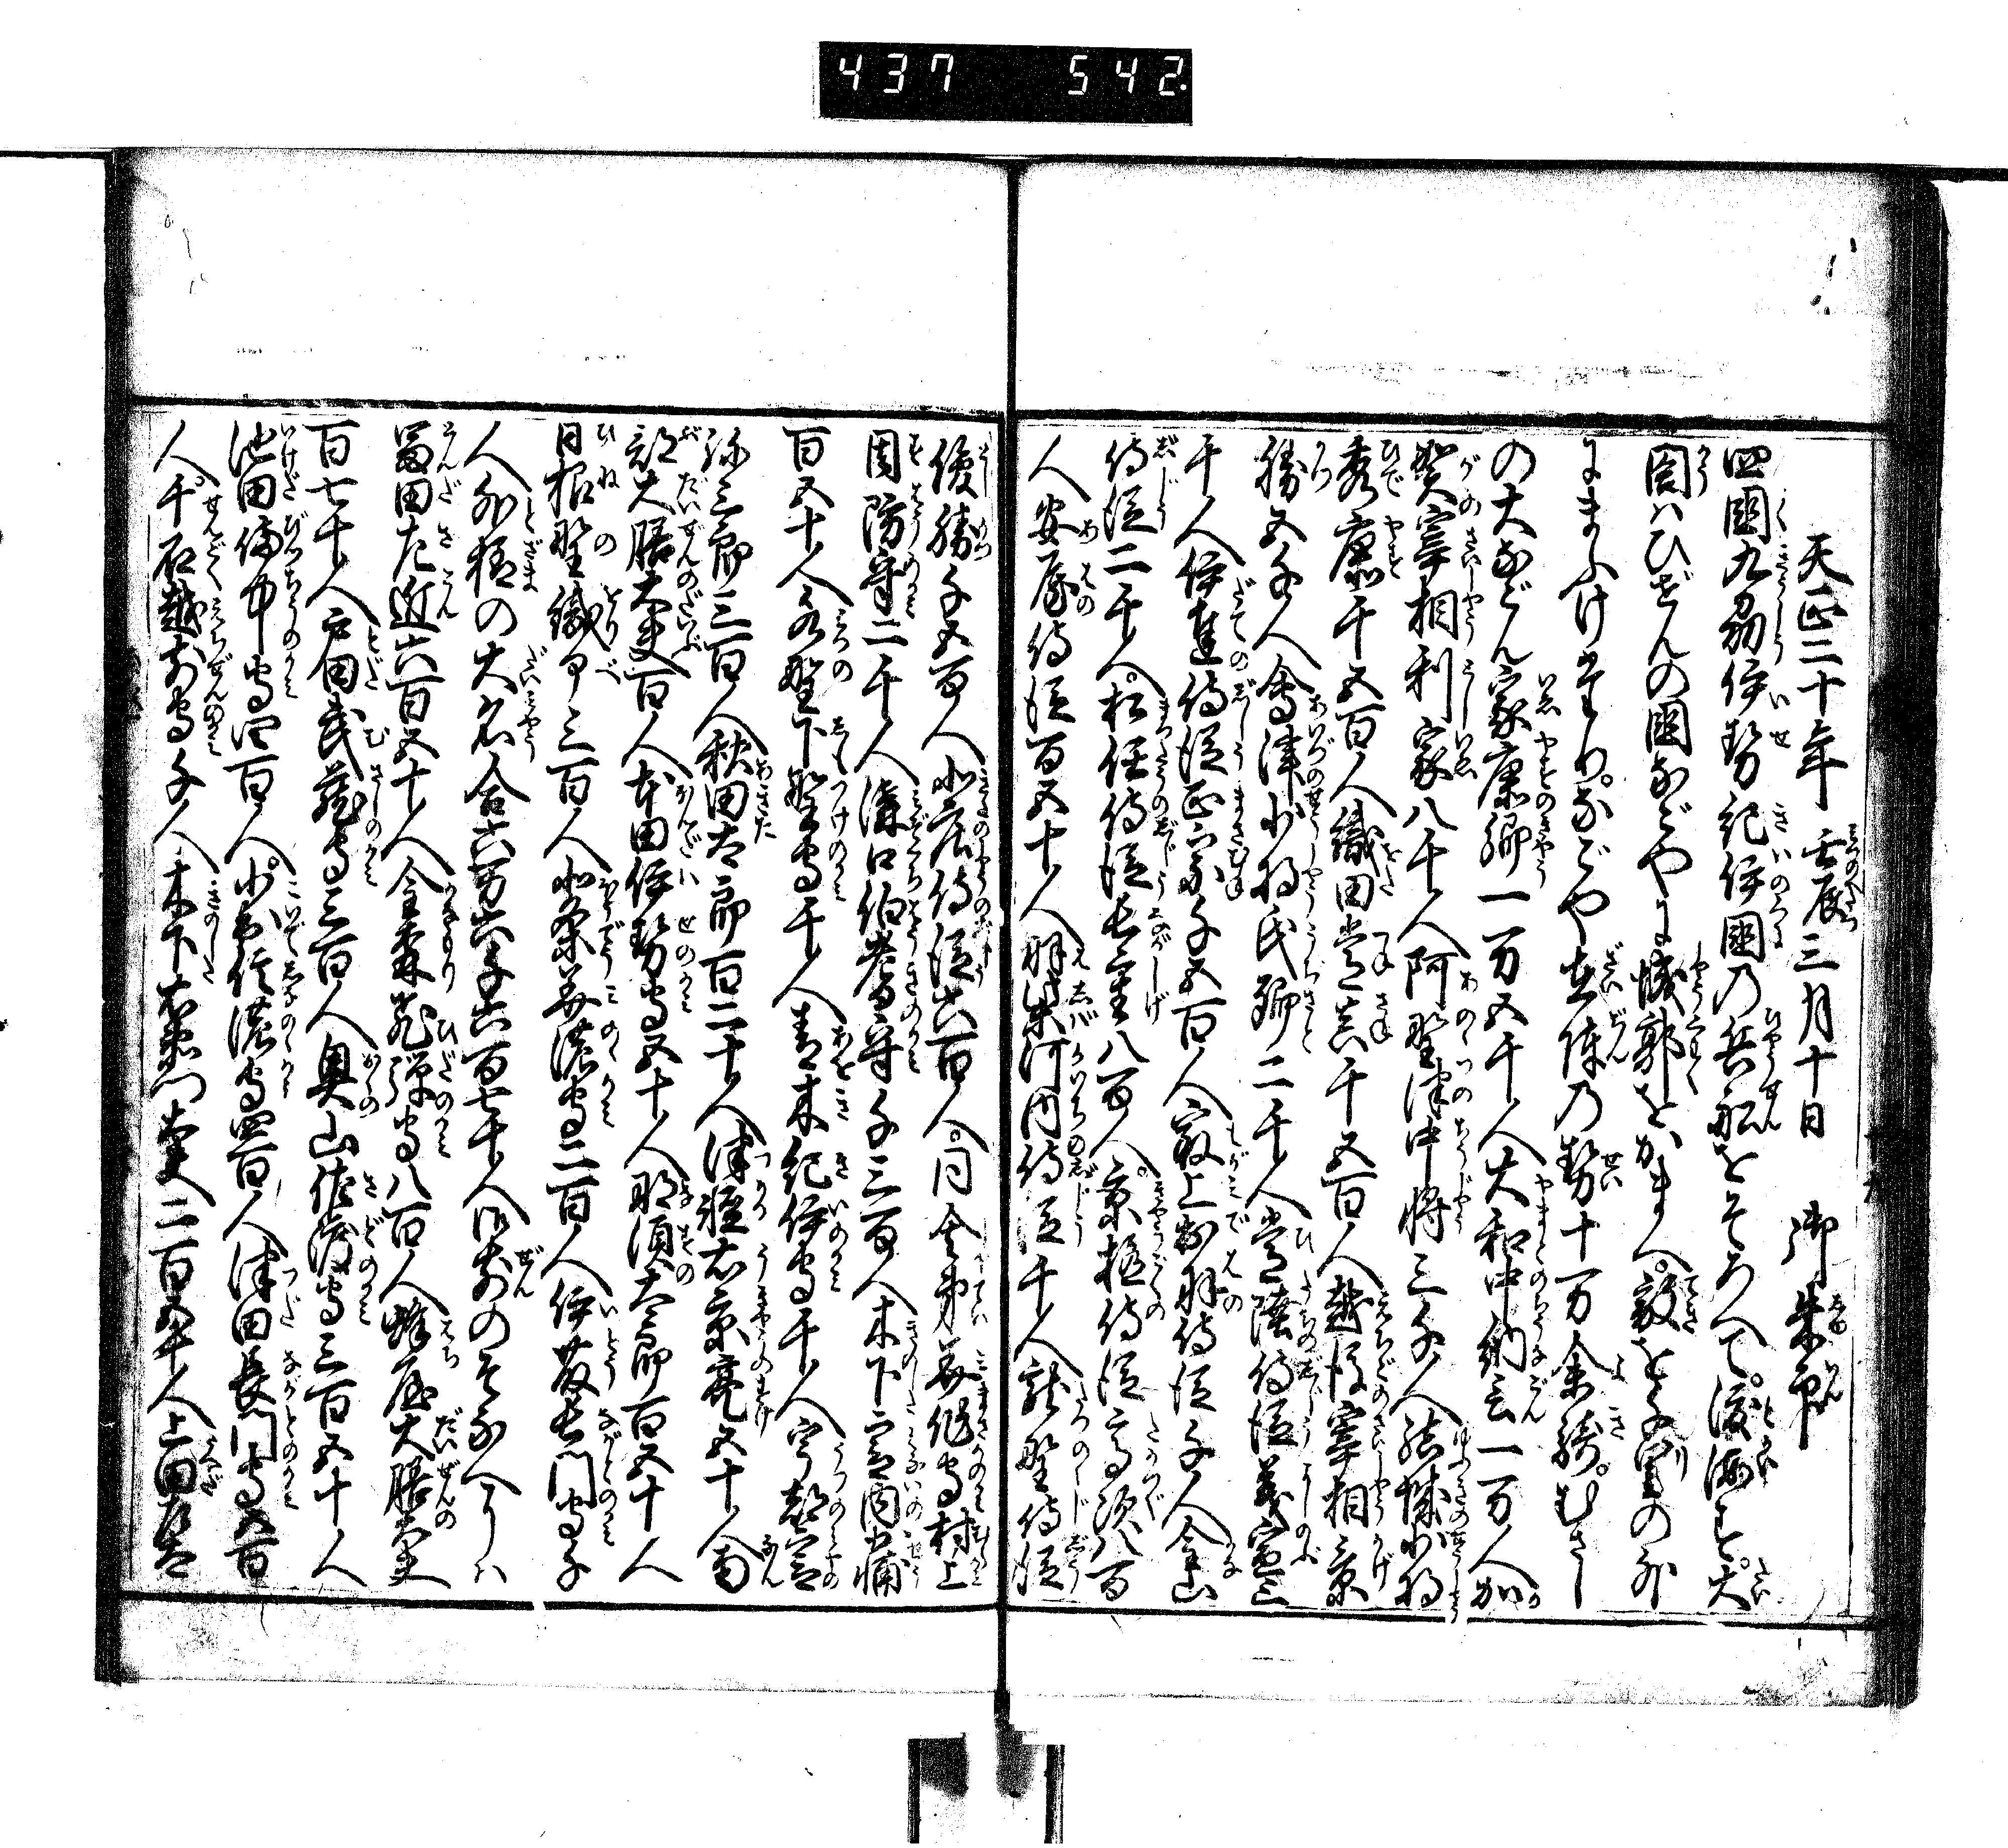 437 542
天正二十年壬辰三月十日 御朱印
四國九州伊勢紀伊國乃兵船をそろへて。渡海す。大
閤ハひぜんの國なごやに城郭をかまへ。敵を千里の外
にまふけたまり。なごや在陣乃勢十万余騎。むさし
の大なごん家康卿一万五千人大和中納言一万人加
賀宰相利家八千人阿野津中将三千人結城少将
秀康千五百人織田常真千五百人越後宰相景
勝五千人會津少将氏郷二千人常陸侍従義宣三
千人伊達侍従正宗千五百人最上出羽侍従千人金山
侍従二千人。松任侍従長重八百人。京極侍従高次八百
人安房侍従百五十人羽柴河内侍従千人龍野侍従
俊勝千五百人北庄侍従六百人。同舎弟美作守村上
周防守二千人溝口伯耆守千三百人木下宮内少輔
百五十人水野下野守千人青木紀伊守千人宇都宮
弥三郎三百人秋田太郎百二十人津軽右京亮五十人南
部大膳大夫百人本田伊勢守五十人那須太郎百五十人
日根野織部三百人北条美濃守二百人伊藤長門守千
人外様の大名合六万六千六百七十人御前のそなへうハ
冨田左近六百五十人金森飛弾守八百人蜂屋大膳大夫
百七十人戸田武蔵守三百人奥山佐渡守三百五十人
池田備中守四百人。小出信濃守四百人津田長門守五百
人。千石越前守千人木下右衛門大夫二百五十人上田左太